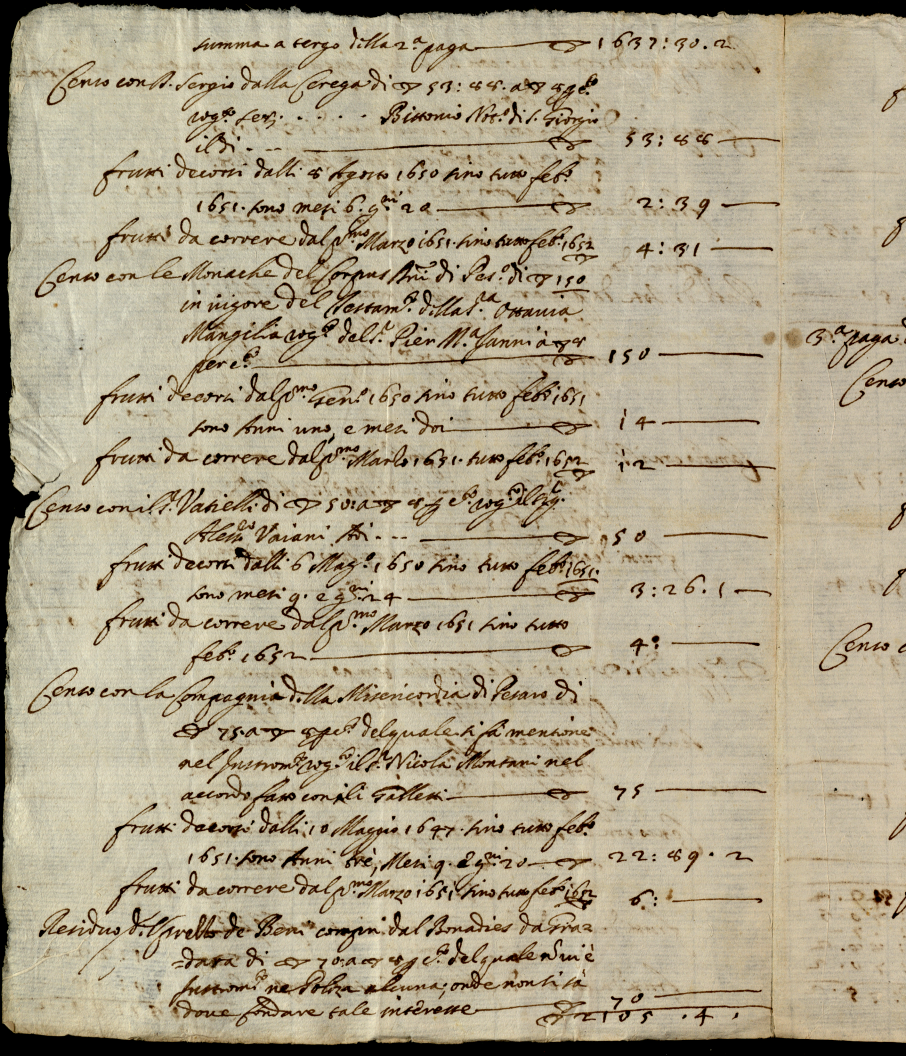 summa a tergo della 2.a paga — 1637:30.2
Censo con S. Sergio dalla Cerega di 53:88. a 8 p c.to
rog.o ser . . . . . Bittonio Not.o di S. Giorgio
il di - - - 53:88
frutti decorsi dalli 8 Agosto 1650 sino tutto feb.o
1651. sono mesi 6. g.ni 20 — 2:39
frutti da correre dal p.mo Marzo 1651. sino tutto feb.o 1652 4:31
Censo con le Monache del Corpus Dni di Pes.o di 150
in vigore del Testam.to della S.a Ottavia
Mangilia rog.o del S. Pier M.a Janni à 8
per c.o — 150
frutti decorsi dal p.mo Gen.o 1650 sino tutto feb.o 1651
sono Anni uno, e mesi doi — 14
frutti da correre dal p.mo Marzo 1651. tutto feb.o 1652 12
Censo con il S. Vatielli di 50: a 8 p c.o rog.o il
Aless.o Vaiani Adi - - - 50
frutti decorsi dalli 6 Mag.o 1650 sino tutto feb.o 1651.
sono mesi 9. e g.ni 24 — 3:26.1
frutti da correre dal p.mo Marzo 1651 sino tutto
feb.o 1652 — 4:
Censo con la Compagnia della Misericordia di Pesaro di
75. a 8 p c.to del quale si fà mentione
nel Instrom.to rog.o il S. Nicola Montani nel
accordo fatto con li Galletti — 75
frutti decorsi dalli 10 Maggio 1647. sino tutto feb.o
1651. sono Anni trè, Mesi 9. e g.ni 20 — 22:89.2
frutti da correre dal p.mo Marzo 1651 sino tutto feb.o 1652 6:
Residuo de Beni dal Bonadies da Gra=
=dara di 70: a 8 p c.to del quale nō vi è
Instrom.to ne Poliza alcuna; onde non si sà
dove fondare tale interesse 70
2105.4.
3.a paga
Censo
Censo